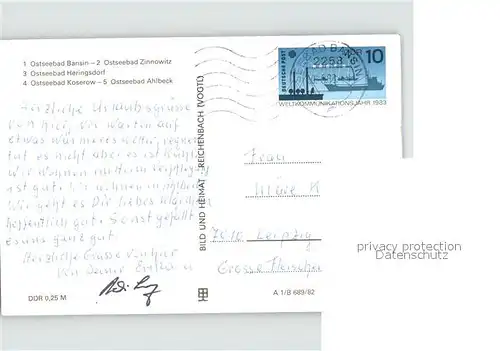 1 Ostseebad Bansin – 2 Ostseebad Zinnowitz
3 Ostseebad Heringsdorf
4 Ostseebad Koserow – 5 Ostseebad Ahlbeck
Herzliche Urlaubsgrüsse
von hier, wir warten auf
etwas wärmeres Wetter, regnen
tut es nicht aber es ist kühl
Wir wohnen und Verpflegung
ist gut. Wir wohnen
Wie geht es Dir liebes
hoffentlich gut. Sonst gefällt
es uns ganz gut
Herzliche Grüsse von hier
von Deiner
DDR 0,25 M
BILD UND HEIMAT REICHENBACH (VOGTL)
A 1/B 689/82
DEUTSCHE POST DDR 10
WELTKOMMUNIKATIONSJAHR 1983
BANSIN
2253
Frau
K
7010 Leipzig
Grosse Fleischer
privacy protection
Datenschutz